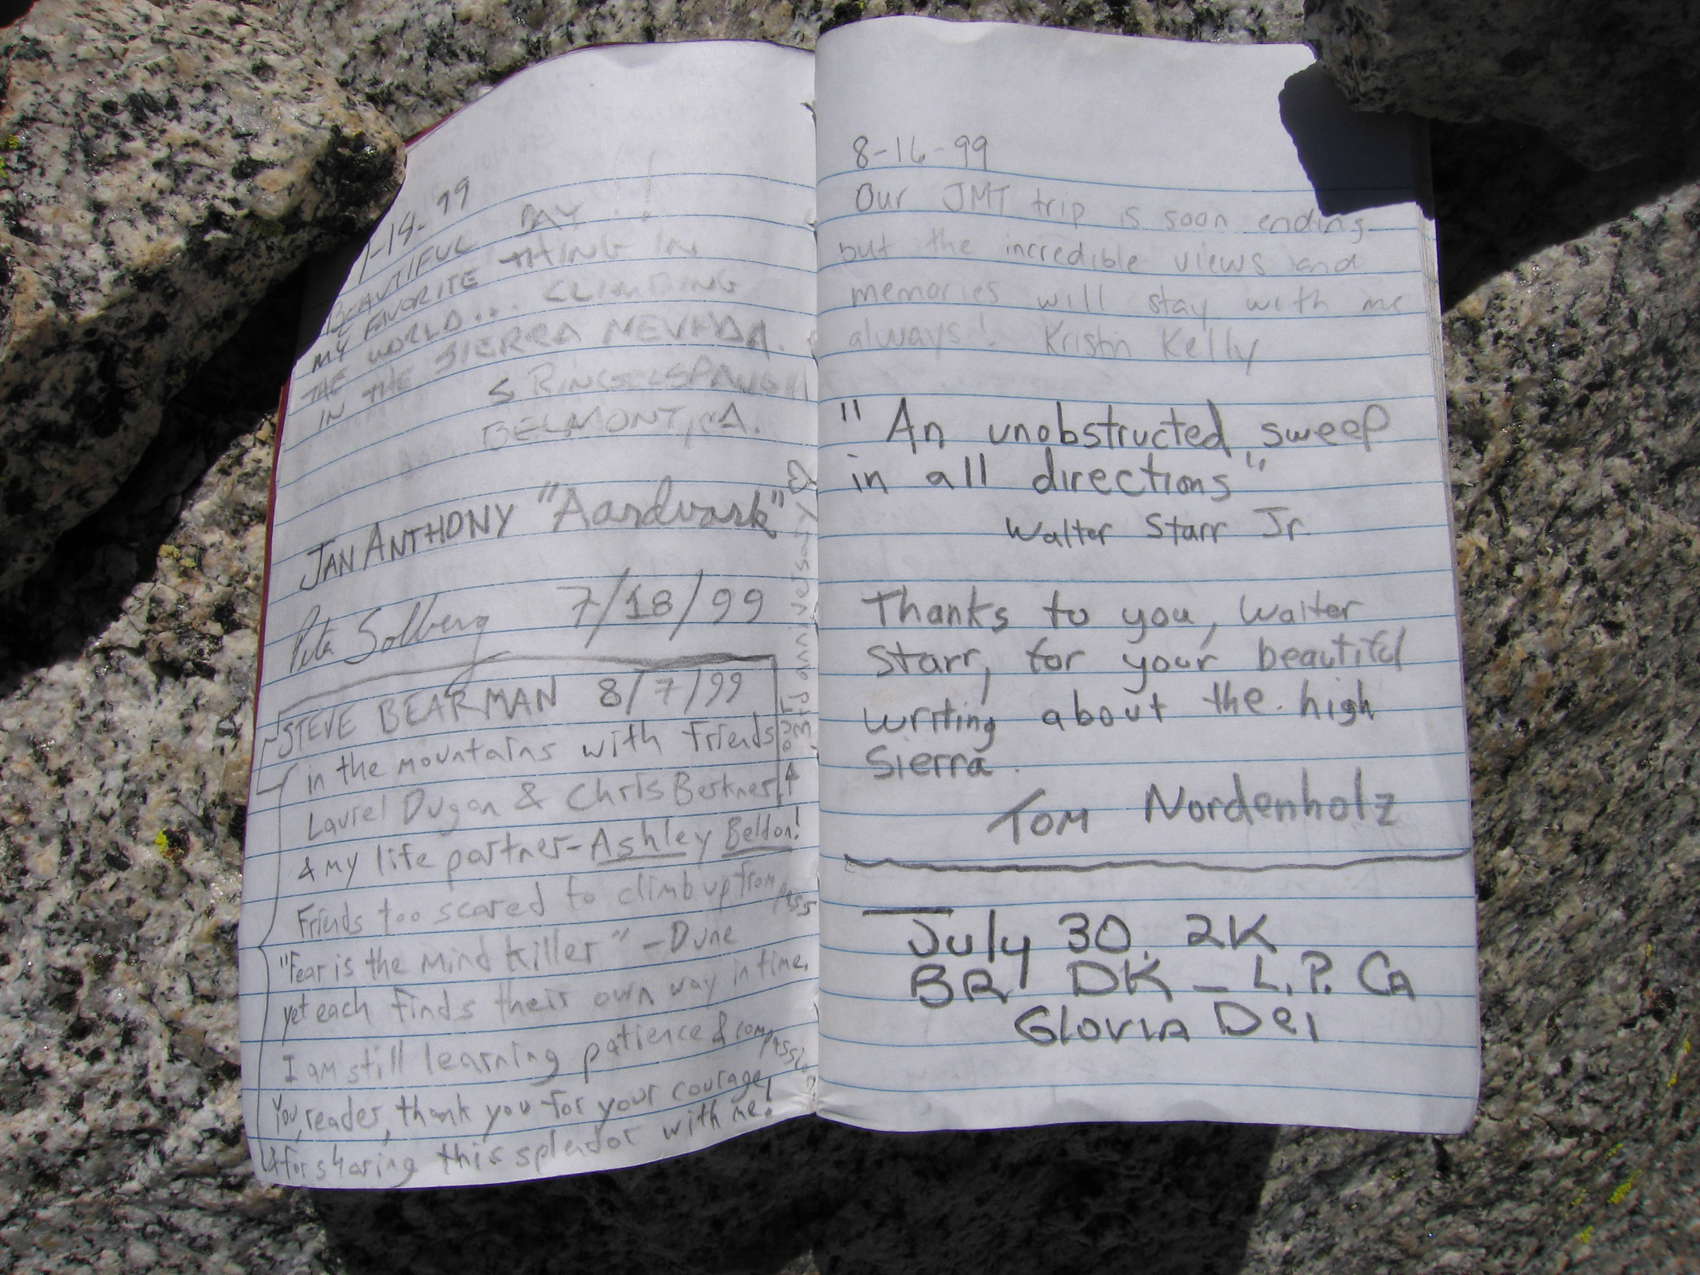 -18-99
BEAUTIFUL DAY..!
MY FAVORITE THING IN
THE WORLD... CLIMBING
IN THE SIERRA NEVADA.
BELMONT, CA.
JAN ANTHONY "Aardvark"
Solberg 7/18/99
STEVE BEARMAN 8/7/99
in the mountains with friends
Laurel Dugan & Chris Berkner
& my life partner-Ashley Beldon!
Friends too scared to climb up from pass
"Fear is the Mind Killer" -Dune
yet each finds their own way in time.
I am still learning patience &
You, reader, thank you for your courage
& for sharing this splendor with me!
our anniversary
8-16-99
Our JMT trip is soon ending
but the incredible views and
memories will stay with me
always! Kristin Kelly
"An unobstructed sweep
in all directions"
Walter Starr Jr.
Thanks to you, Walter
Starr, for your beautiful
writing about the high
Sierra.
Tom Nordenholz
July 30, 2K
BR, DK - L.P. Ca
Gloria Dei